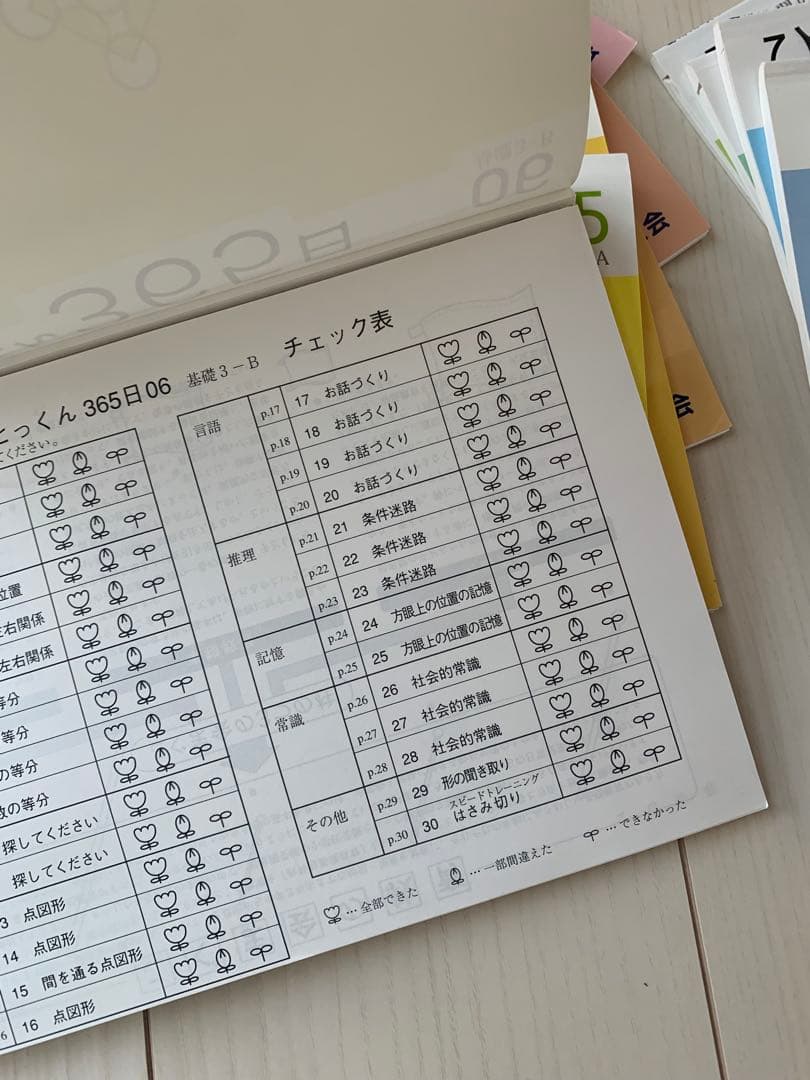 とっくん 365日 06 基礎3-B チェック表
てください。
位置
左右関係
左右関係
等分
等分
の等分
数の等分
探してください
探してください
3 点図形
14 点図形
15 間を通る点図形
6 16 点図形
言語 p.17 17 お話づくり
p.18 18 お話づくり
p.19 19 お話づくり
p.20 20 お話づくり
推理 p.21 21 条件迷路
p.22 22 条件迷路
p.23 23 条件迷路
記憶 p.24 24 方眼上の位置の記憶
p.25 25 方眼上の位置の記憶
常識 p.26 26 社会的常識
p.27 27 社会的常識
p.28 28 社会的常識
その他 p.29 29 形の聞き取り
スピードトレーニング
p.30 30 はさみ切り
…全部できた …一部間違えた …できなかった
5
A
会
会
7